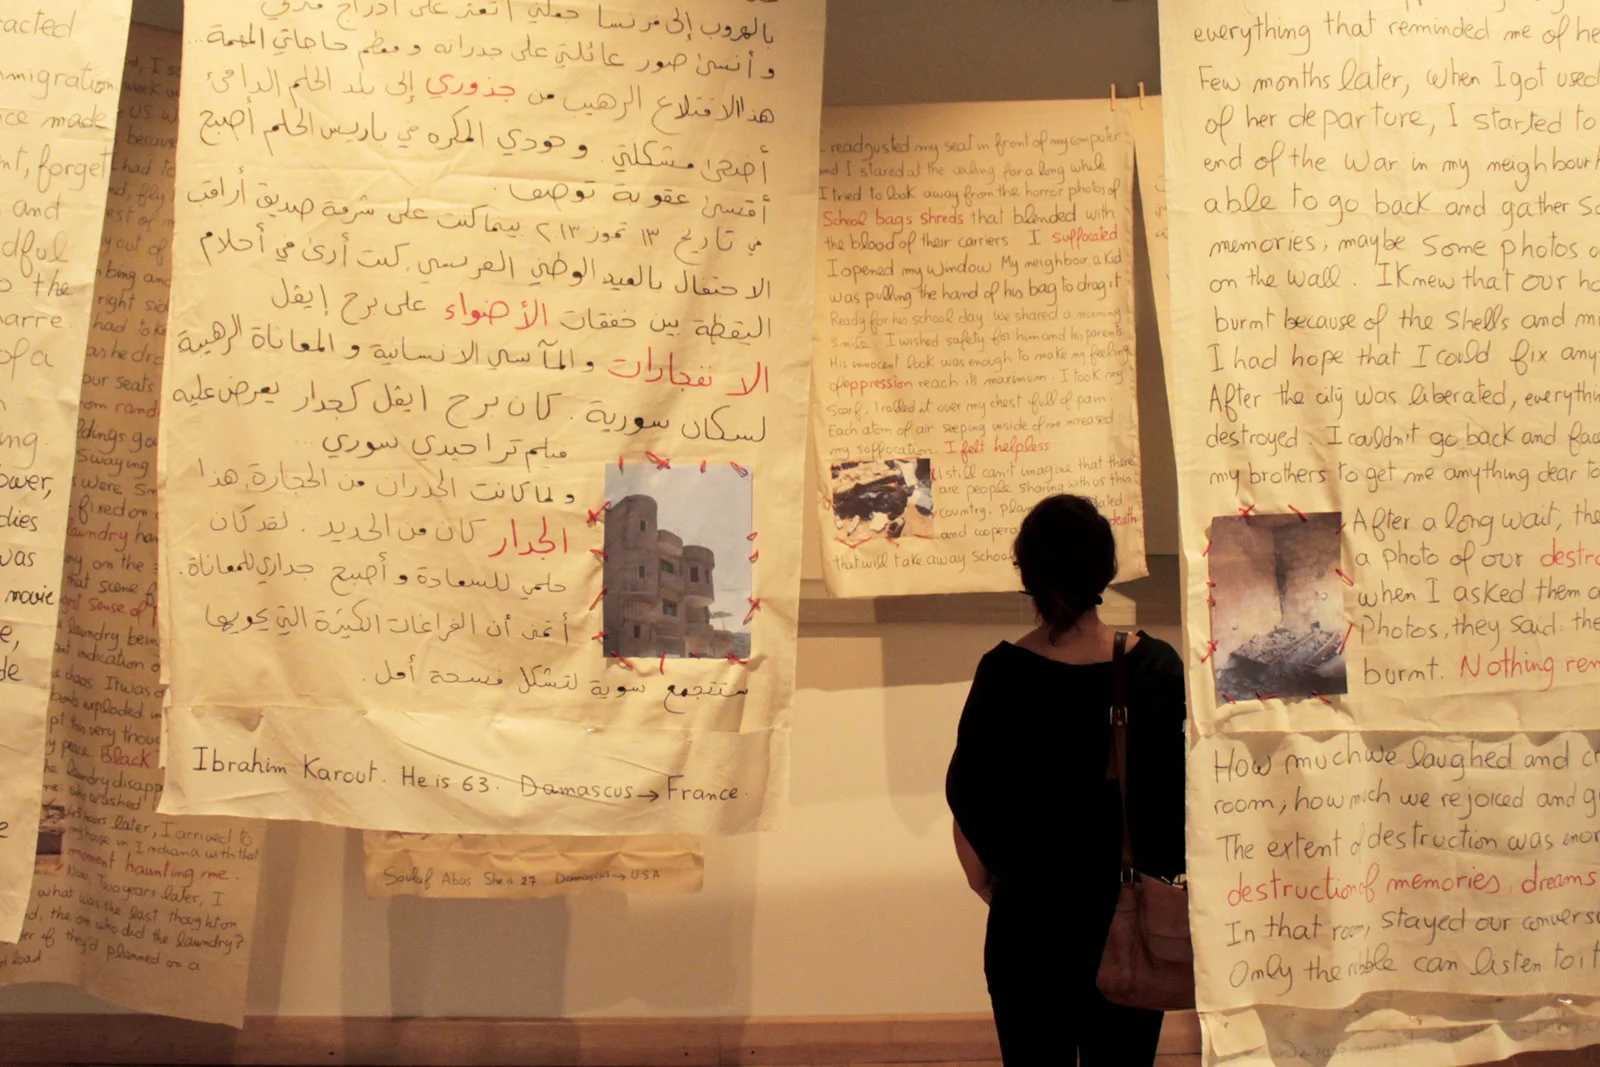 acted
mmigration
ce made
nt, forget
and
dful
the
narre.
of a
ing.
ower,
dies
was
movie
e,
de
d, I
week
US w
because
had to
d, fley
est of m
y out of
bing and
right sid
had to ke
as he dro
our seats
om rand
ldings go
Swaying
were sm
fixed on
laundry ha
ny on the
that scene
gest sense of
laundry bein
nt indication o
chaos It was
bomb exploded
pt this very thou
y peace Black
he laundry disapp
who washed
45 hours later, I arrived to
my house in Indiana with that
moment haunting me.
Now, Two years later, I
what was the last thought on
d, the one who did the laundry?
er if they'd planned on a
load
بالهروب إلى فرنسا جعلني أتعثر على أدراج منزلي
و أنسى صور عائلتي على جدرانه و معظم حاجاتي المهمة...
هذا الاقتلاع الرهيب من جذوري إلى بلد الحلم الدامي
أضحى مشكلتي. و وجودي المكره في باريس الحلم أصبح
أقسى عقوبة توصف.
في تاريخ ١٣ تموز ٢٠١٣ بينما كنت على شرفة صديق أراقب
الاحتفال بالعيد الوطني الفرنسي. كنت أرى في أحلام
اليقظة بين خفقات الأضواء على برج إيفل
الانفجارات و المآسي الانسانية و المعاناة الرهيبة
لسكان سورية. كان برج ايفل كجدار يعرض عليه
فيلم تراجيدي سوري...
و لما كانت الجدران من الحجارة هذا
الجدار كان من الحديد. لقد كان
حلمي للسعادة و أصبح جداري للمعاناة.
أتمنى أن الفراغات الكثيرة التي يحويها
ستتجمع سوية لتشكل فسحة أمل.
Ibrahim Karout. He is 63. Damascus → France.
Soulaf Abas She is 27 Damascus → USA
I readjusted my seat in front of my computer
and I stared at the ceiling for a long while
I tried to look away from the horror photos of
School bags shreds that blended with
the blood of their carriers I suffocated
I opened my window My neighbour a kid
was pulling the hand of his bag to drag it
Ready for his school day. we shared a morning
smile. I wished safety for him and his parents
His innocent look was enough to make my feeling
of oppression reach its maximum. I took my
Scarf, I rolled it over my chest full of pain.
Each atom of air seeping inside of me increased
my suffocation. I felt helpless
I still can't imagine that there
are people sharing with us this
country, plan
and coopera death
that will take away School
everything that reminded me of he
Few months later, when I got used
of her departure, I started to
end of the war in my neighbour
able to go back and gather so
memories, maybe some photos o
on the wall. I Knew that our ho
burnt because of the shells and mi
I had hope that I could fix any
After the city was liberated, everythin
destroyed. I couldn't go back and fac
my brothers to get me anything dear to
After a long wait, the
a photo of our destro
when I asked them a
Photos, they said: the
burnt. Nothing rem
How much we laughed and cr
room, how much we rejoiced and g
The extent of destruction was mor
destruction of memories, dreams
In that room, stayed our convers
Only the rubble can listen to it